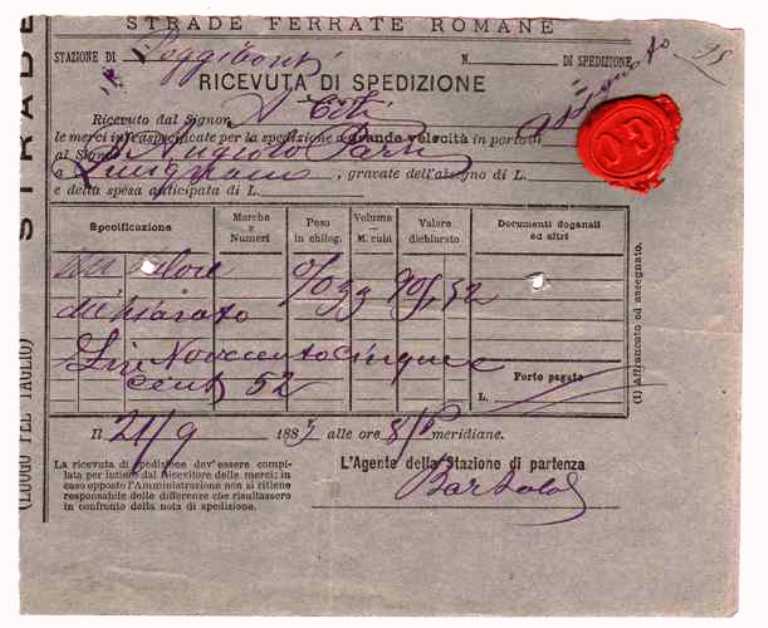 STRADE FERRATE ROMANE
STAZIONE DI Poggibonsi N. DI SPEDIZIONE
RICEVUTA DI SPEDIZIONE
Ricevuto dal Signor
le merci infraspecificate per la spedizione a grande velocità in porto (1) assegnato
al Sig. Angiolo Parri
a Lucignano, gravate dell'assegno di L.
e della spesa anticipata di L.
Specificazione
Marche e Numeri
Peso in chilog.
Volume M. cubi
Valore dichiarato
Documenti doganali ed altri
Un valore 0/033 905,52
dichiarato
Lire Novecentocinque
cent 52
Porto pagato
L.
(1) Affrancato od assegnato.
Il 21/9 1885 alle ore 8 meridiane.
La ricevuta di spedizione dev'essere compi-
lata per intiero dal Ricevitore delle merci; in
caso opposto l'Amministrazione non si ritiene
responsabile delle differenze che risultassero
in confronto della nota di spedizione.
L'Agente della Stazione di partenza
STRADE
(LUOGO PEL TAGLIO)